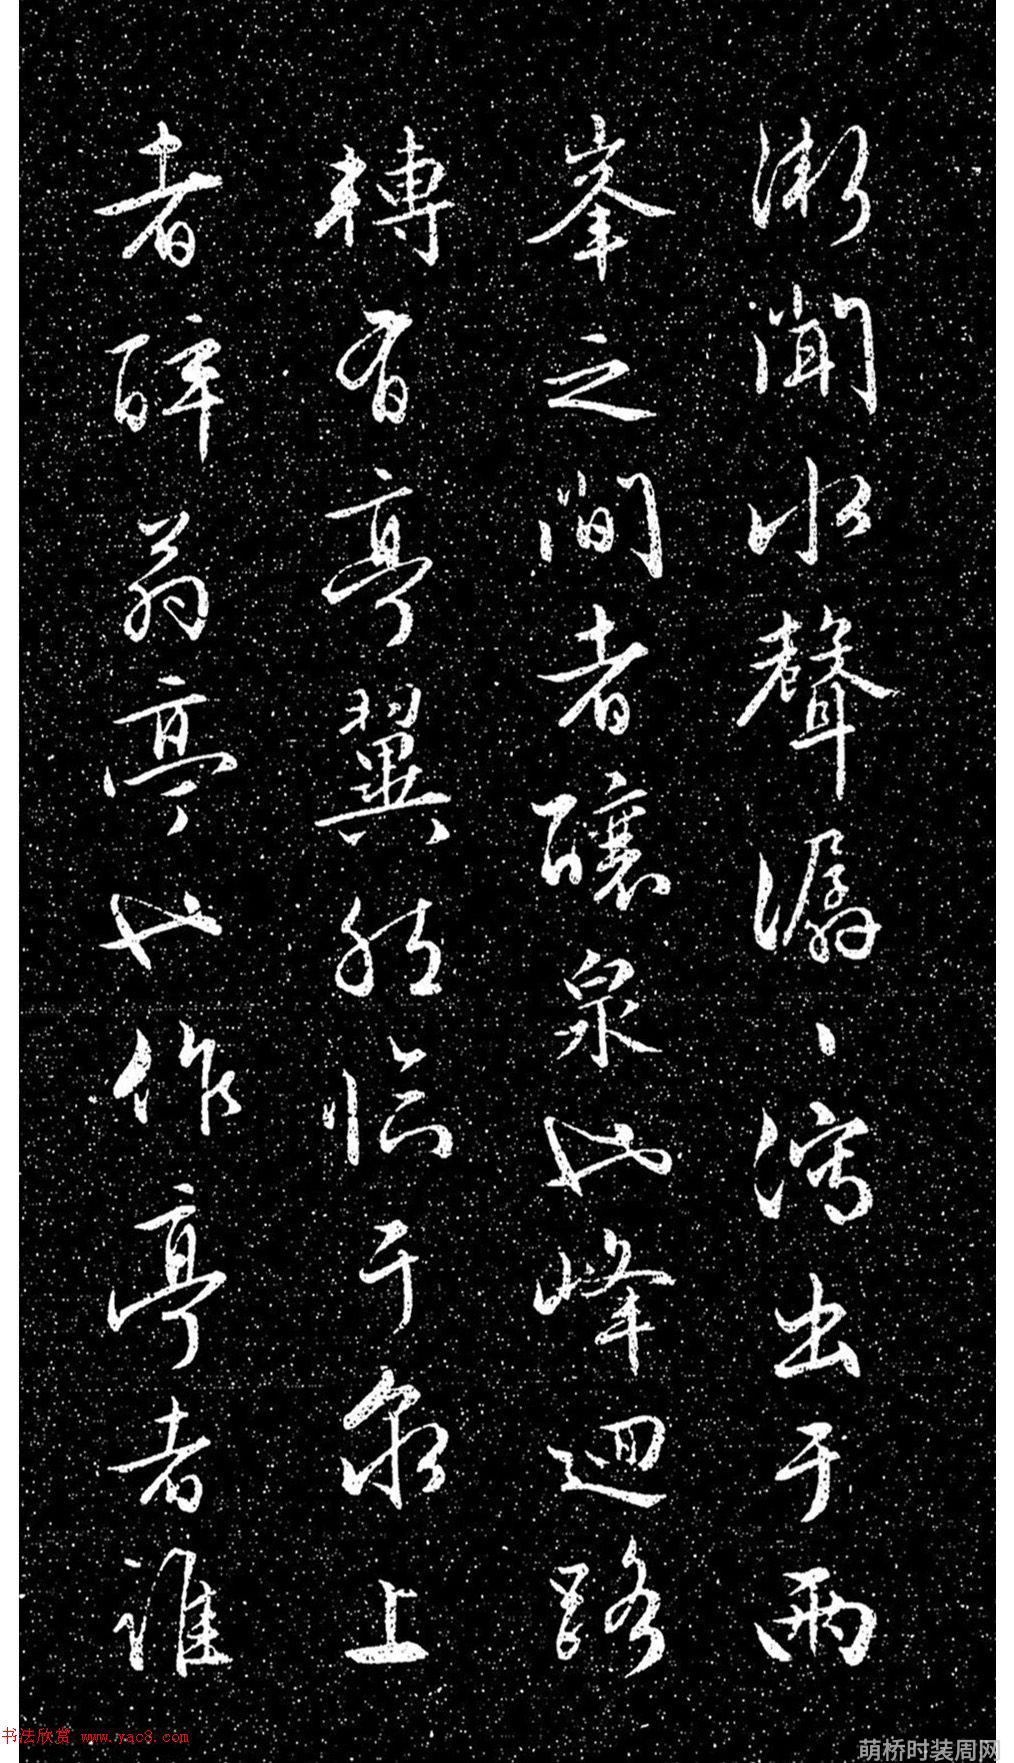 漸聞水聲潺丶瀉出于兩
峯之間者釀泉也峰迴路
轉有亭翼然臨于泉上
者醉翁亭也作亭者誰
书法欣赏 www.yac8.com
萌桥时装周网